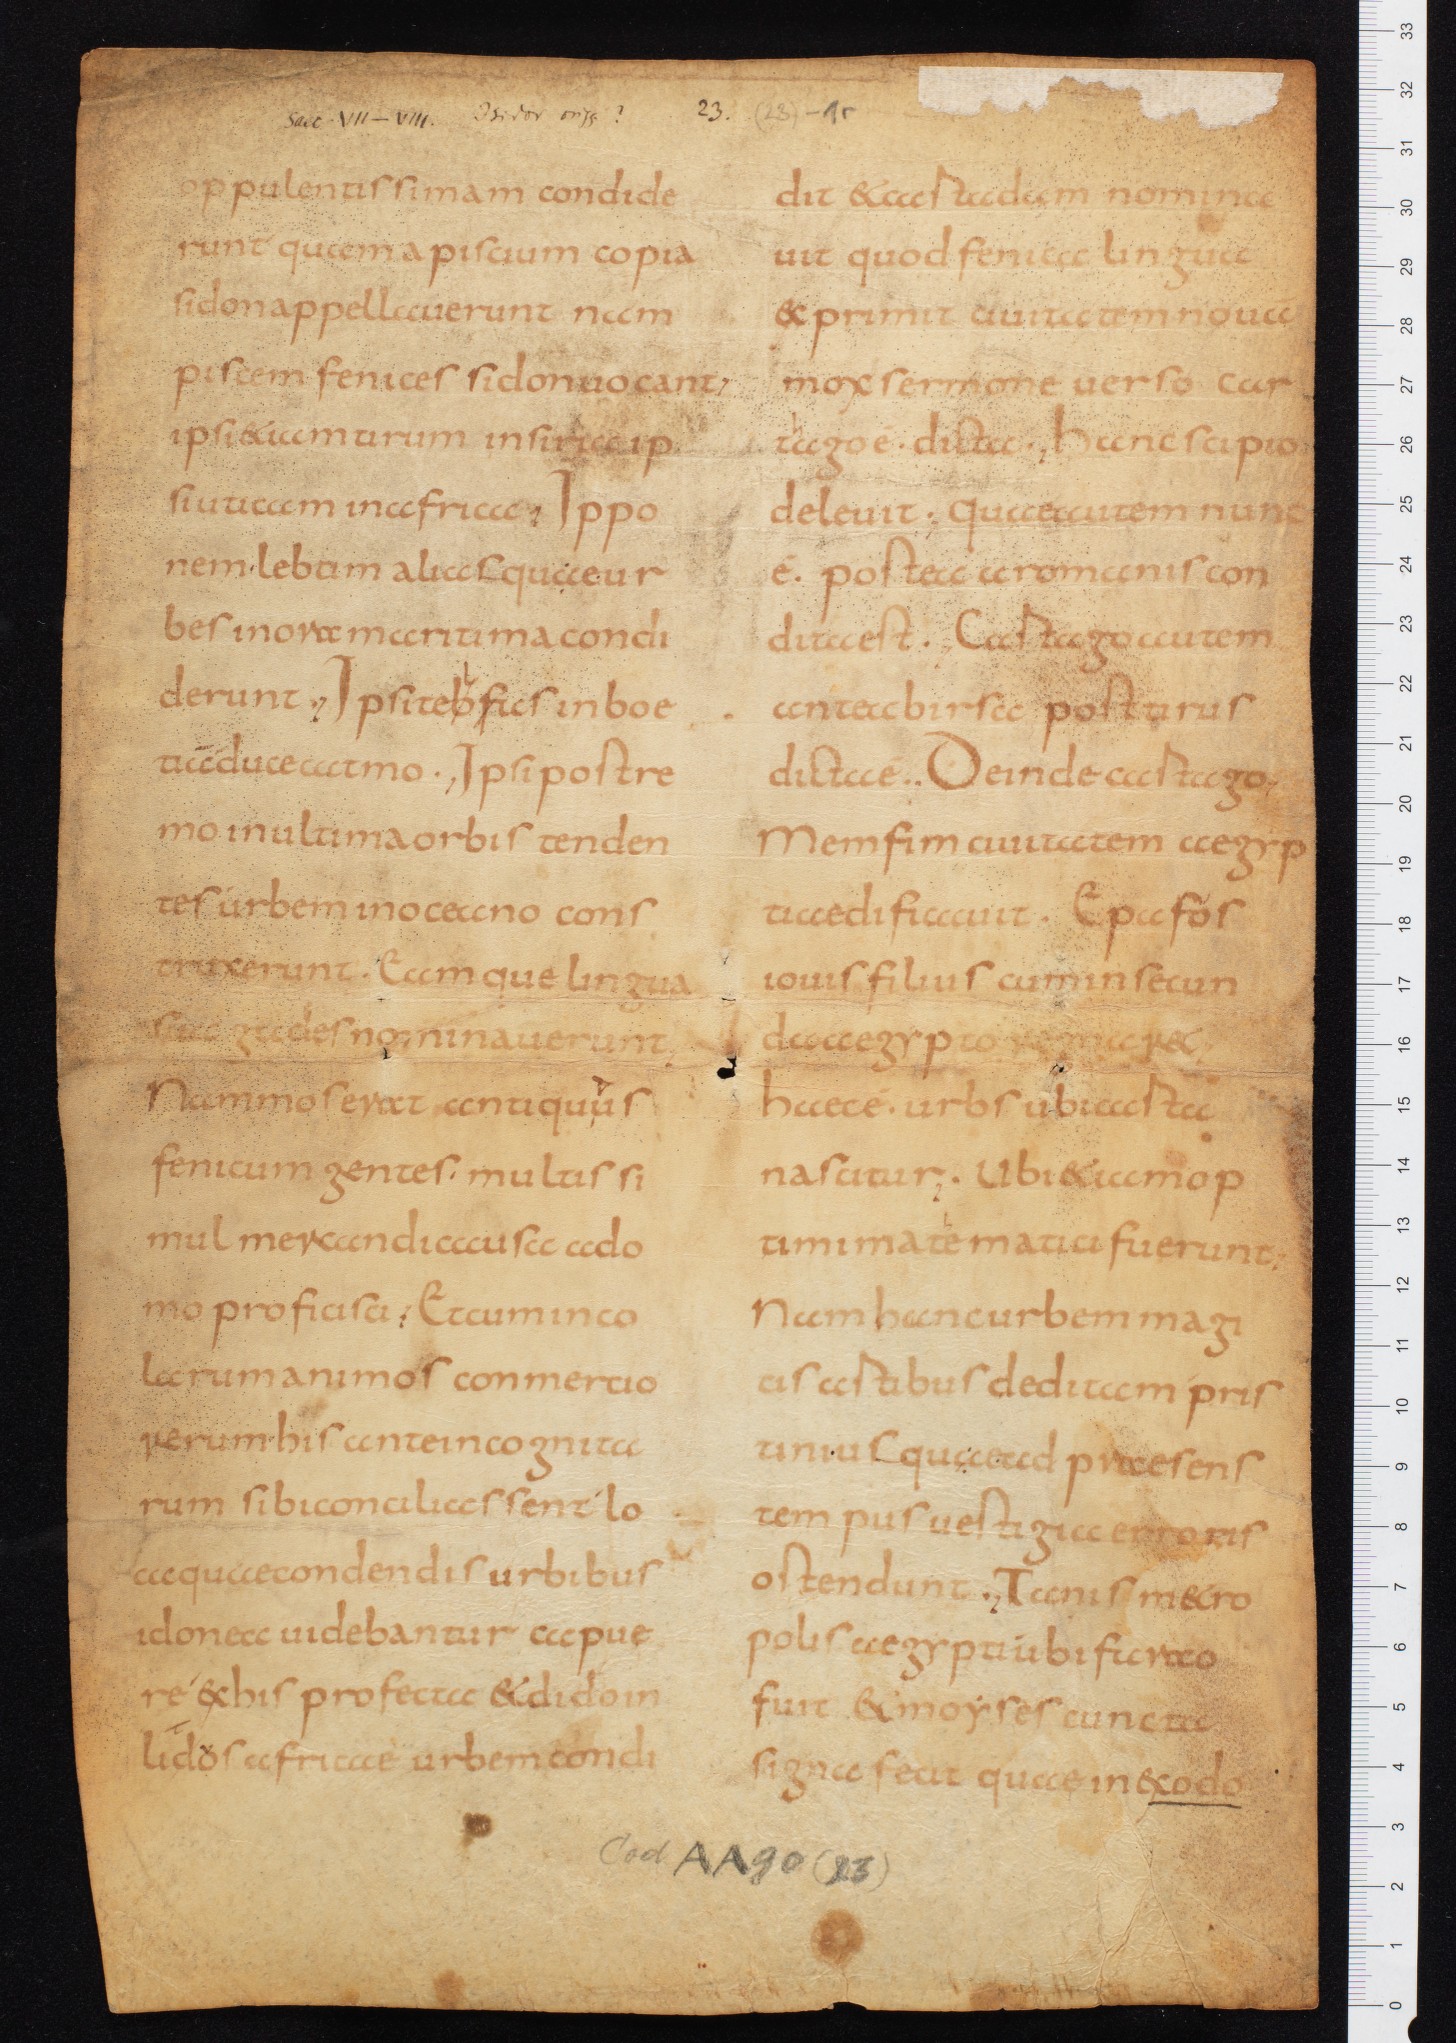 Saec. VII–VIII. Isidor orig ? 23. (23) – 1r
oppulentissimam condide
runt quam a piscium copia
sidon appellauerunt nam
piscem fenices sidon uocant;
ipsi & iam tirum in siria ip
si uticam in africa; Ippo
nem. lebtim aliasquae ur
bes in ora maritima condi
derunt; Ipsi tebhs fics in boe
tia duce catmo.; Ipsi postre
mo in ultima orbis tenden
tes urbem in oceano cons
truxerunt. Eamque lingua
sua gades nominauerunt;
Nam mos erat antiquus
fenicum gentes. multis si
mul mercandi causa a do
mo proficisci; Et cum inco
larum animos conmercio
rerum his ante incognita
rum sibi conciliassent lo
ca quae condendis urbibus
idonea uidebantur capue
re & his profecta & dido in
litdos africae urbem condi
dit & castadam nomina
uit quod fenicca lingua
&primit ciuitatem nouā
mox sermone uerso car
thago ē. dicta.; hanc scipio
deleuit; quae autem nunc
ē. postea a romanis con
dita est.; Castago autem
antea birsa post tirus
dicta ē.. Deinde castago;
Memfim ciuitatem aegyp
ti aedificauit. Epafos
iouis filius cum in secun
da aegypto regnar&;
haec ē. urbs ubi casta
nascitur;. Ubi & iam op
timi mathematici fuerunt;
Nam hanc urbem magi
cis astibus deditam pris
tiniusquae ad praesens
tempus uestigia erroris
ostendunt.; Tanis m&ro
polis aegypti ubi farao
fuit & moyses cuncta
signa fecit quae in exodo
Cod AA90 (23)